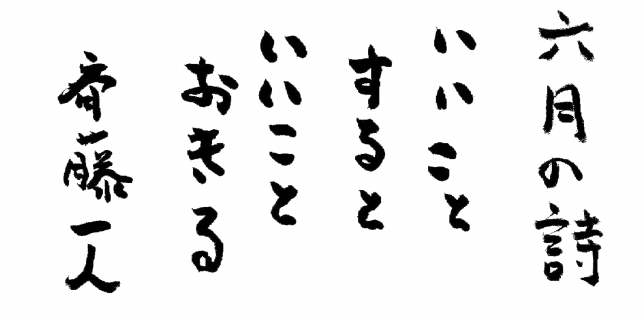 六月の詩
いいこと
すると
いいこと
おきる
斎藤一人